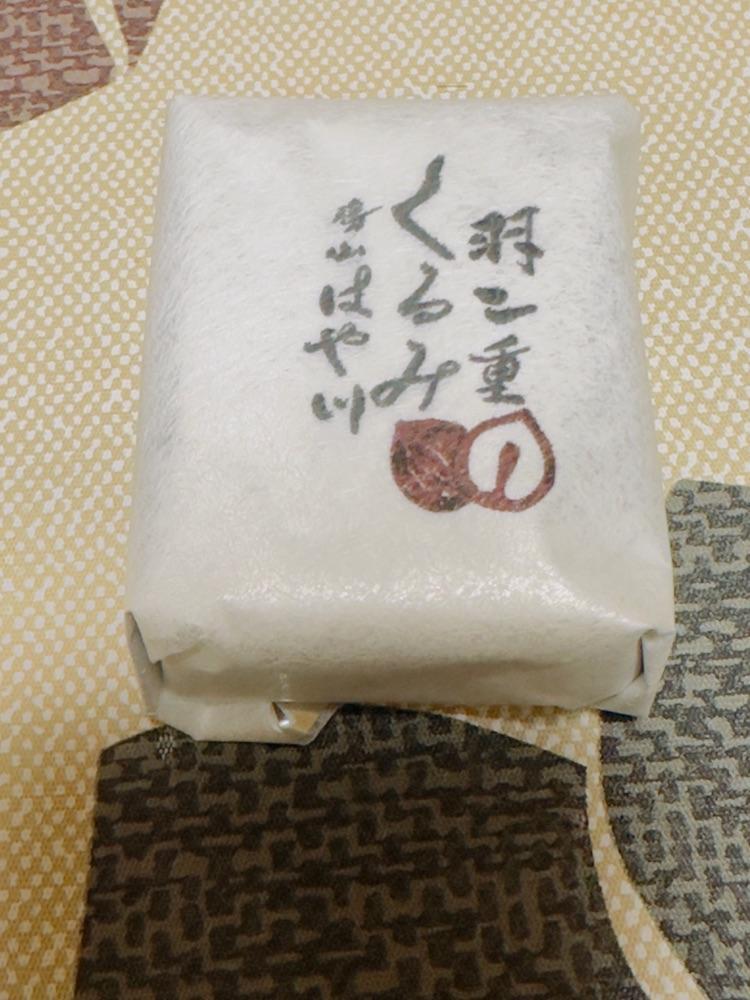 羽二重
くるみ
勝山
はや川